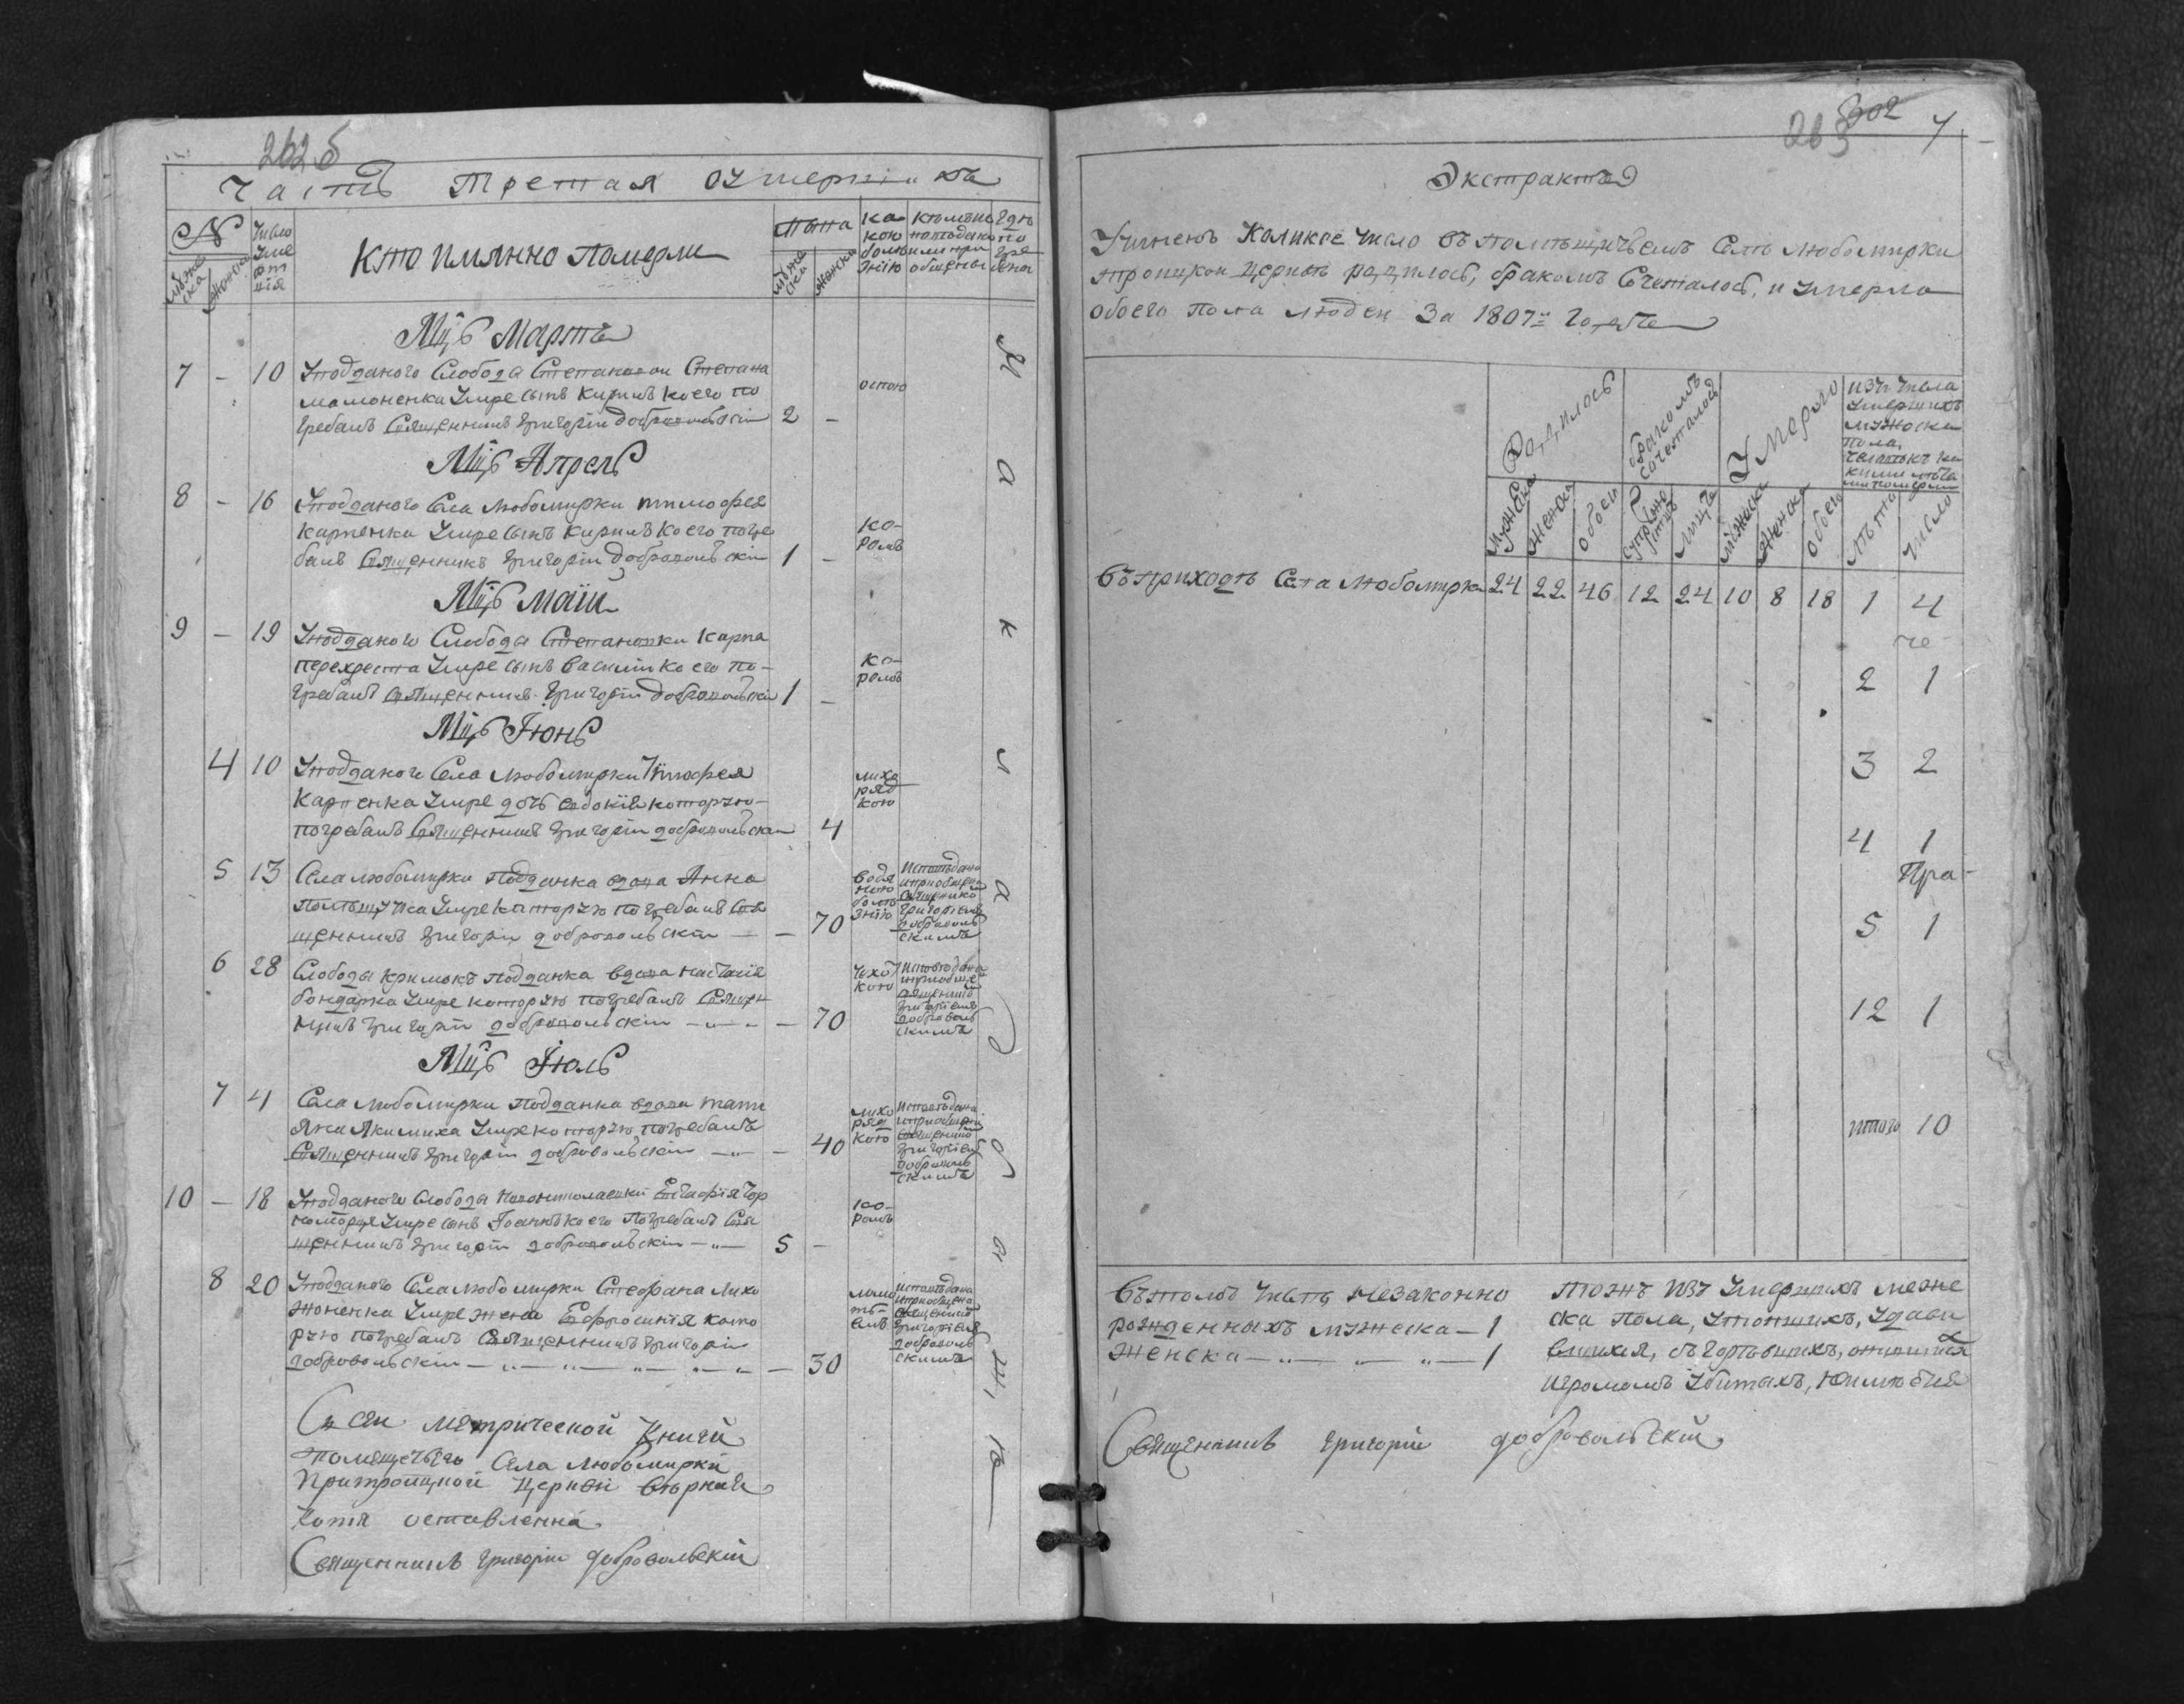 262 б
Часть Третая Умершихъ
№
мужеска
женска
Число умертія
Кто имянно Померли
Лѣта
мужеска
женска
Какою болѣзнію
Кѣмъ исповѣданы и приобщены
Гдѣ погребены
Мцъ Мартъ
7 – 10 Уподданого Слободы Степановки Степана
мамоненка Умре сынъ Кирилъ коего по
гребалъ Священникъ григорій добровольскій 2 –
оспою
Мцъ Апрель
8 – 16 Уподданого Села Любомирки тимофея
карпенка Умре сынъ Кирилъ коего погре
балъ Священникъ григорій добровольскій 1 –
ко-
ромъ
Мцъ маій
9 – 19 Уподданого Слободы Степановки карпа
перехреста Умре сынъ василій коего по-
гребалъ Священникъ григорій добровольскій 1 –
ко-
ромъ
Мцъ Іюнь
4 10 Уподданого Села Любомирки тимофея
Карпенка Умре дочь евдокія которую-
погребалъ Священникъ григорій добровольскій 4
лихо
рад
кою
5 13 Села любомирки подданка вдова Анна
Умре которую погребалъ Свя
щенникъ григорій добровольскій — – 70
водя
ною
болѣ
знію
Исповѣдана
и приобщена
священико
григоріемъ
доброволь
скимъ
6 28 Слободы кримокъ подданка вдова наталія
бондарка Умре которую погребалъ Священ
никъ григорій добровольскій – „ – „ – 70
чихот
кою
Исповѣдана
и приобще
священико
григоріемъ
доброволь
скимъ
Мцъ Іюль
7 4 Села Любомирки подданка вдова тати
яна Якимиха Умре которую погребалъ
Священникъ григорій добровольскій – „ – 40
лихо
рад
кою
Исповѣдана
и приобщена
священико
григоріемъ
доброволь
скимъ
10 – 18 Уподданого Слободы Евстафія Чор
номорця Умре сынъ Іоаннъ коего Погребалъ Свя
щенникъ григорій добровольскій – „ – 5 –
ко-
ромъ
8 20 Уподданого Села Любомирки Стефана
Умре жена Ефросинія кото
рую погребалъ Священникъ григорій
добровольскій – „ – „ – „ – „ – „ – 30
исповѣдана
и приобщена
священико
григоріемъ
доброволь
скимъ
Съ сей метрической Книги
помѣщечьяго Села Любомирки
При троицкой Церкви вѣрная
Копія оставленна
Священникъ григорій добровольскій
263
302
7
Экстрактъ
Учиненъ Коликое число въ помѣщичьемъ Селѣ Любомирки
троицкой церквѣ родилось, бракомъ Сочеталось, и умерло
обоего пола людей За 1807й Годъ
Родилось
бракомъ сочеталось
Умерло
изъ числа
умершихъ
мужеска
пола,
мужеска
женска
обоего
супружествъ
лицъ
мужеска
женска
обоего
лѣта
число
Въ приходѣ Села Любомирки 24 22 46 12 24 10 8 18 1 4
че-
2 1
3 2
4 1
Пра-
5 1
12 1
итого 10
Въ томъ числѣ незаконно
рожденныхъ мужеска – 1
женска – „ – „ – „ – 1
Тожъ изъ умершихъ муже
ска пола, утопшихъ, удави
вшихся, сгорѣвшихъ,
и громомъ убитыхъ, неимѣется
Священникъ григорій добровольскій